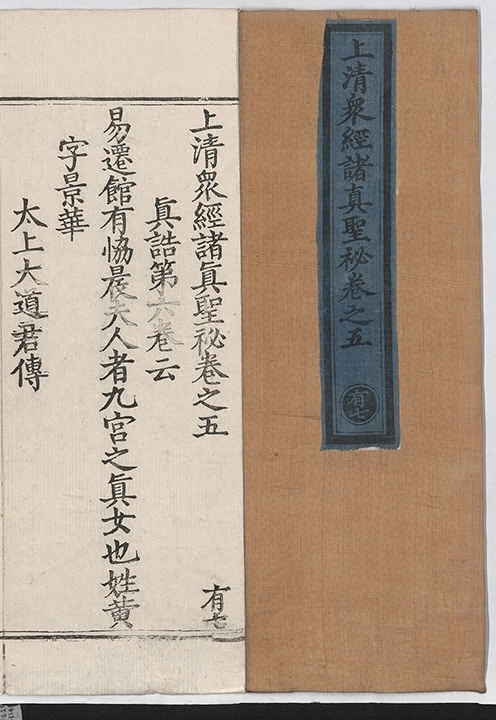 上清衆經諸真聖祕卷之五
有七
上清眾經諸眞聖祕卷之五
有七
眞誥第六卷云
易遷館有協晨夫人者九宮之眞女也姓黃
字景華
太上大道君傳